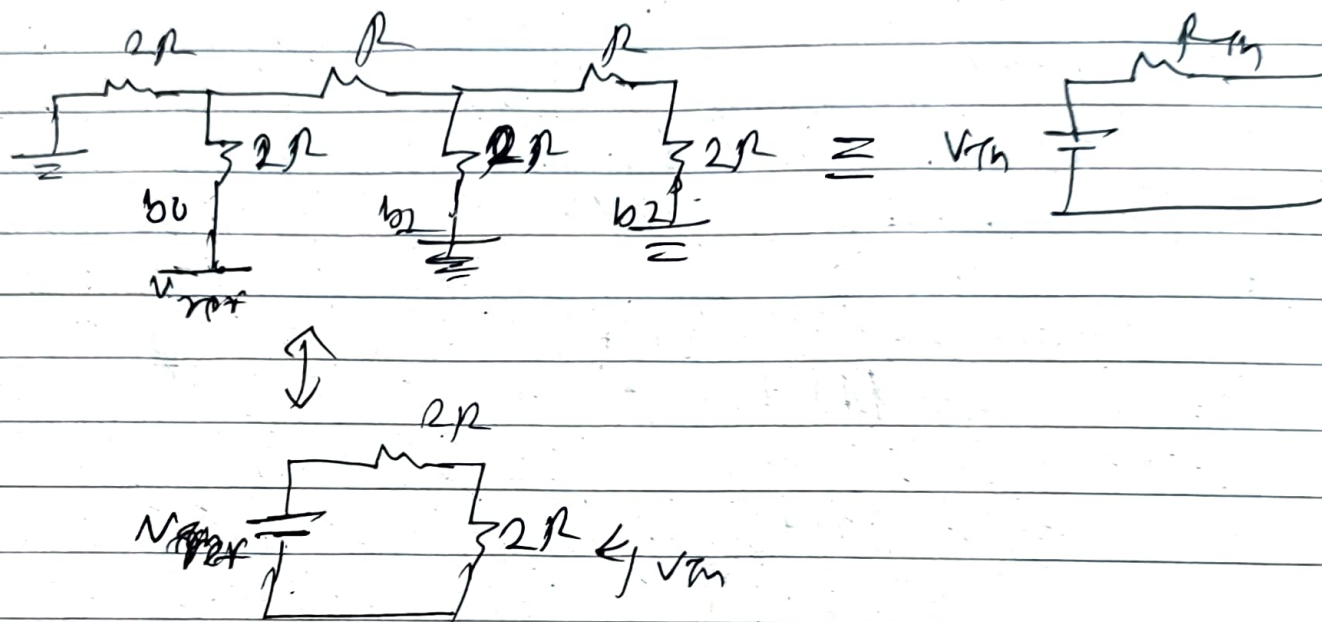 2R R R RTh
2R 2R 2R ≡ VTh
b0 b1 b2
Vref
⇕
2R
Vref 2R ← VTh